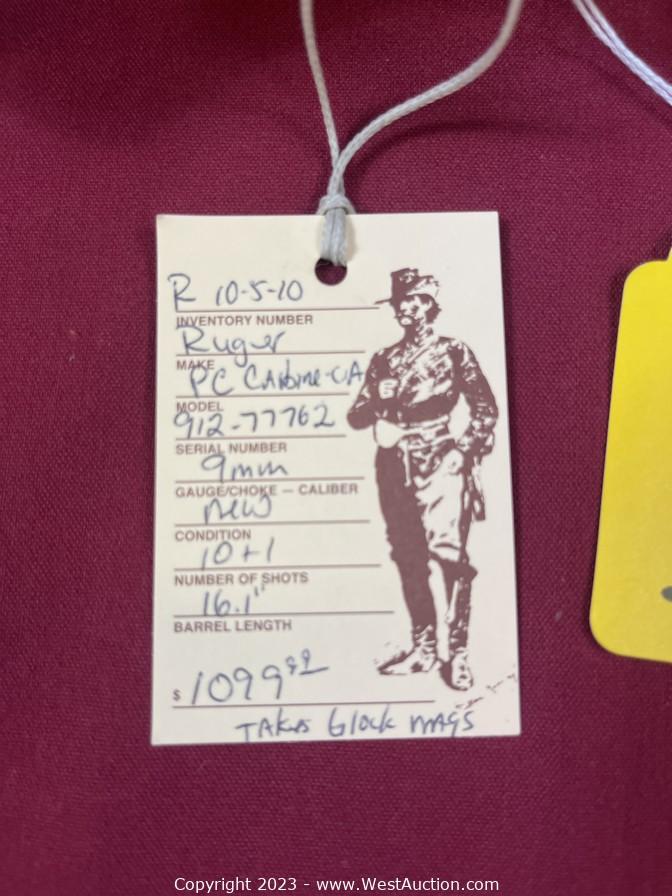 R 10-5-10
INVENTORY NUMBER
Ruger
MAKE
PC Carbine-CA
MODEL
912-77762
SERIAL NUMBER
9mm
GAUGE/CHOKE — CALIBER
New
CONDITION
10+1
NUMBER OF SHOTS
16.1"
BARREL LENGTH
$ 1099⁹⁹
TAKES Glock MAGS
Copyright 2023 - www.WestAuction.com